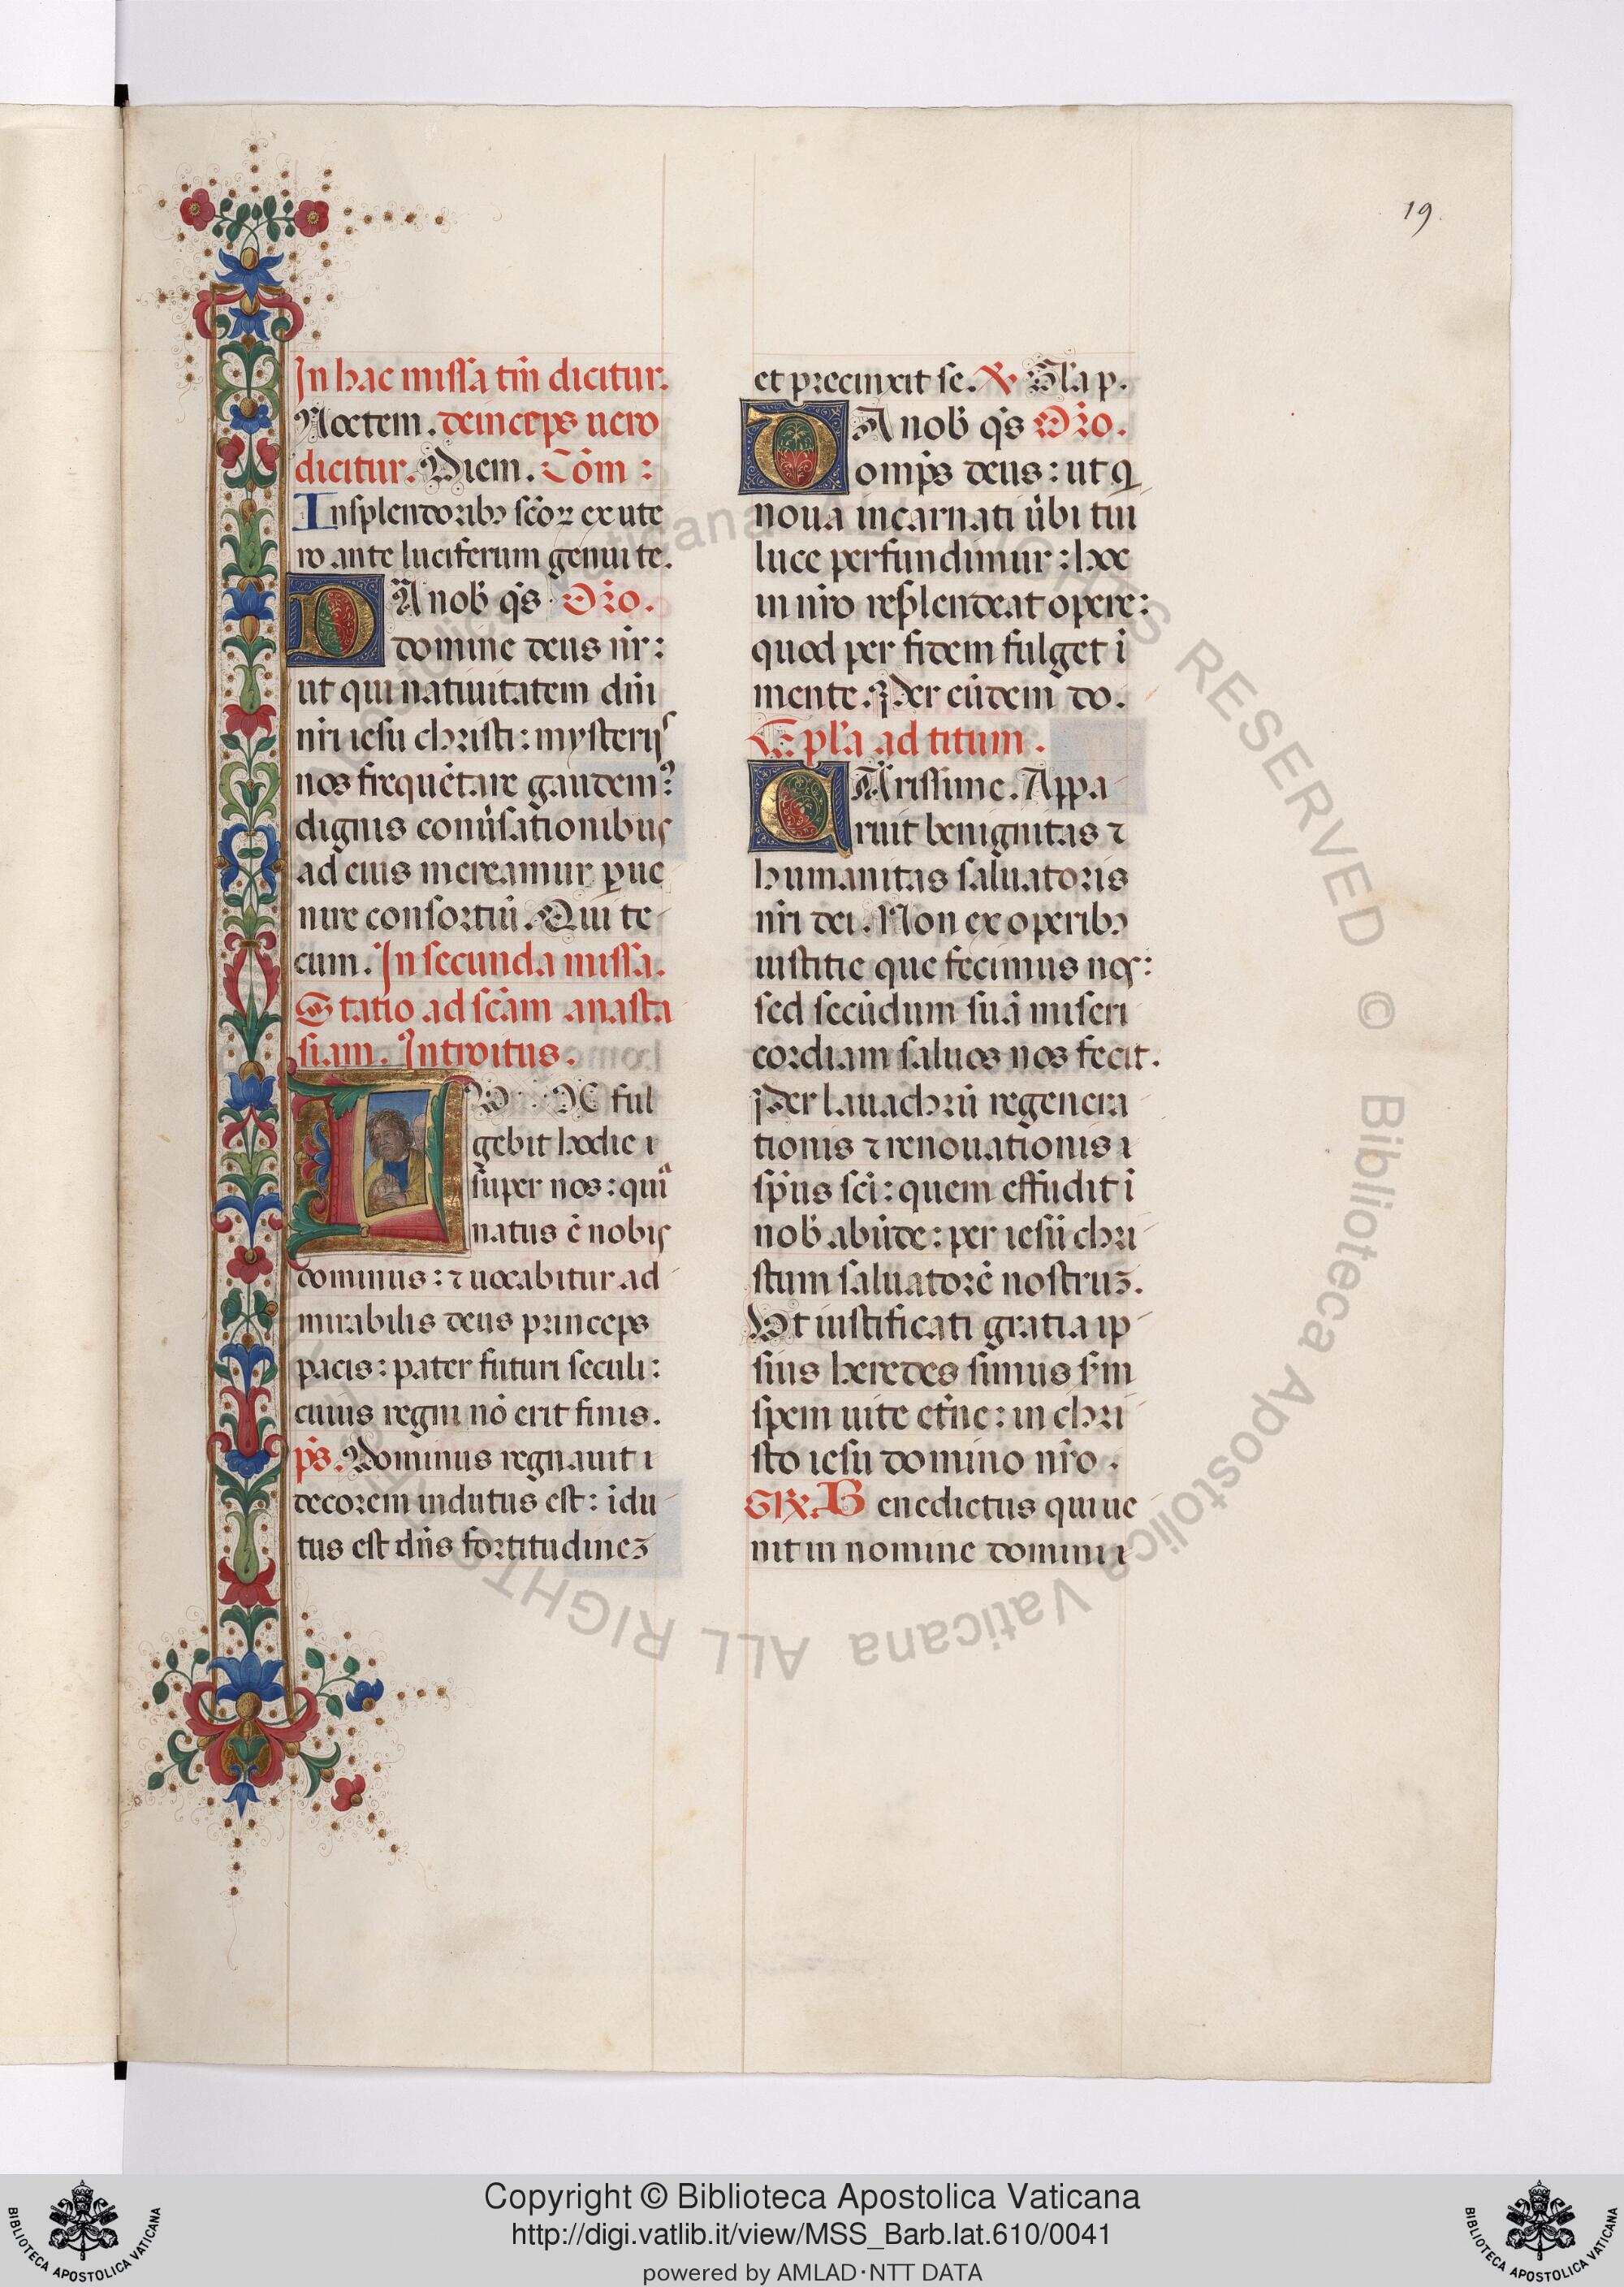 19.
In hac missa tm̄ dicitur.
Noctem. deinceps uero
dicitur. Diem. Cōm :
In splendoribꝫ scōꝝ ex ute
ro ante luciferum genui te.
DA nob̄ q̄s Or̄o.
domine deus nr̄ :
ut qui natiuitatem dn̄i
nr̄i iesu christi : mysterijs
nos frequētare gaudemꝰ
dignis conuͥsationibus
ad eius mereamur ꝑue
nire consortiū. Qui te
cum. In secunda missa.
Statio ad scām anasta
siam. Introitus.
LUX ful
gebit hodie
super nos : quiᵃ
natus ē nobis
dominus : ⁊ uocabitur ad
mirabilis deus princeps
pacis : pater futuri seculi :
cuius regni nō erit finis.
p̄s. Dominus regnauit
decorem indutus est : īdu
tus est dn̄s fortitudineꝫ
et precinxit se. ℣ Gl̄a p.
DA nob̄ q̄s Or̄o.
omp̄s deus : ut q
noua incarnati ūbi tui
luce perfundimur : hoc
in nr̄o resplendeat opere :
quod per fidem fulget ī
mente. Per eūdem do.
Epl̄a ad titum.
CArissime. Appa
ruit benignitas ⁊
humanitas saluatoris
nr̄i dei. Non ex operibꝫ
iustitie que fecimus nos :
sed secūdum suā miseri
cordiam saluos nos fecit.
Per lauachrū regenera
tionis ⁊ renouationis
sp̄us sc̄i : quem effudit ī
nob̄ abūde : per iesū chri
stum saluatorē nostruꝫ.
Ut iustificati gratia ip
sius heredes simus s̄m
spem uite et̄ne : in chri
sto iesu domino nr̄o.
GR̄. Benedictus qui ue
nit in nomine domini
Copyright © Biblioteca Apostolica Vaticana
http://digi.vatlib.it/view/MSS_Barb.lat.610/0041
powered by AMLAD·NTT DATA
BIBLIOTECA APOSTOLICA VATICANA
BIBLIOTECA APOSTOLICA VATICANA
© Biblioteca Apostolica Vaticana ALL RIGHTS RESERVED